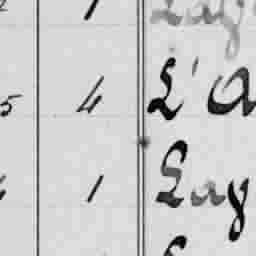 1 Lay
5 4 L'A
1 Lay